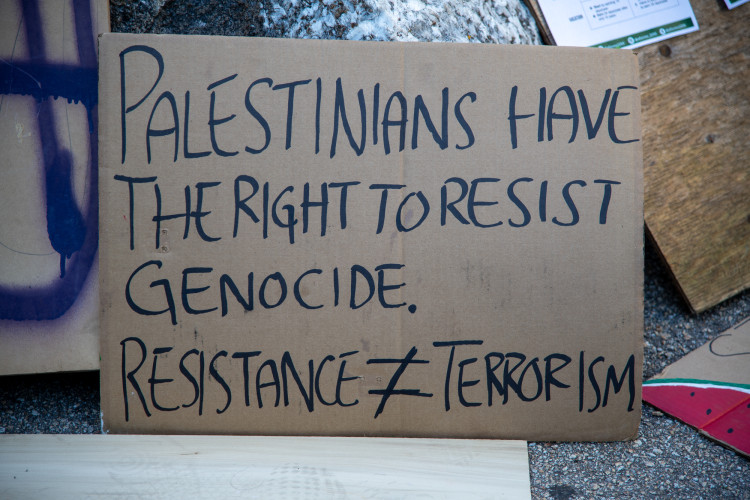 PALESTINIANS HAVE
THE RIGHT TO RESIST
GENOCIDE.
RESISTANCE ≠ TERRORISM